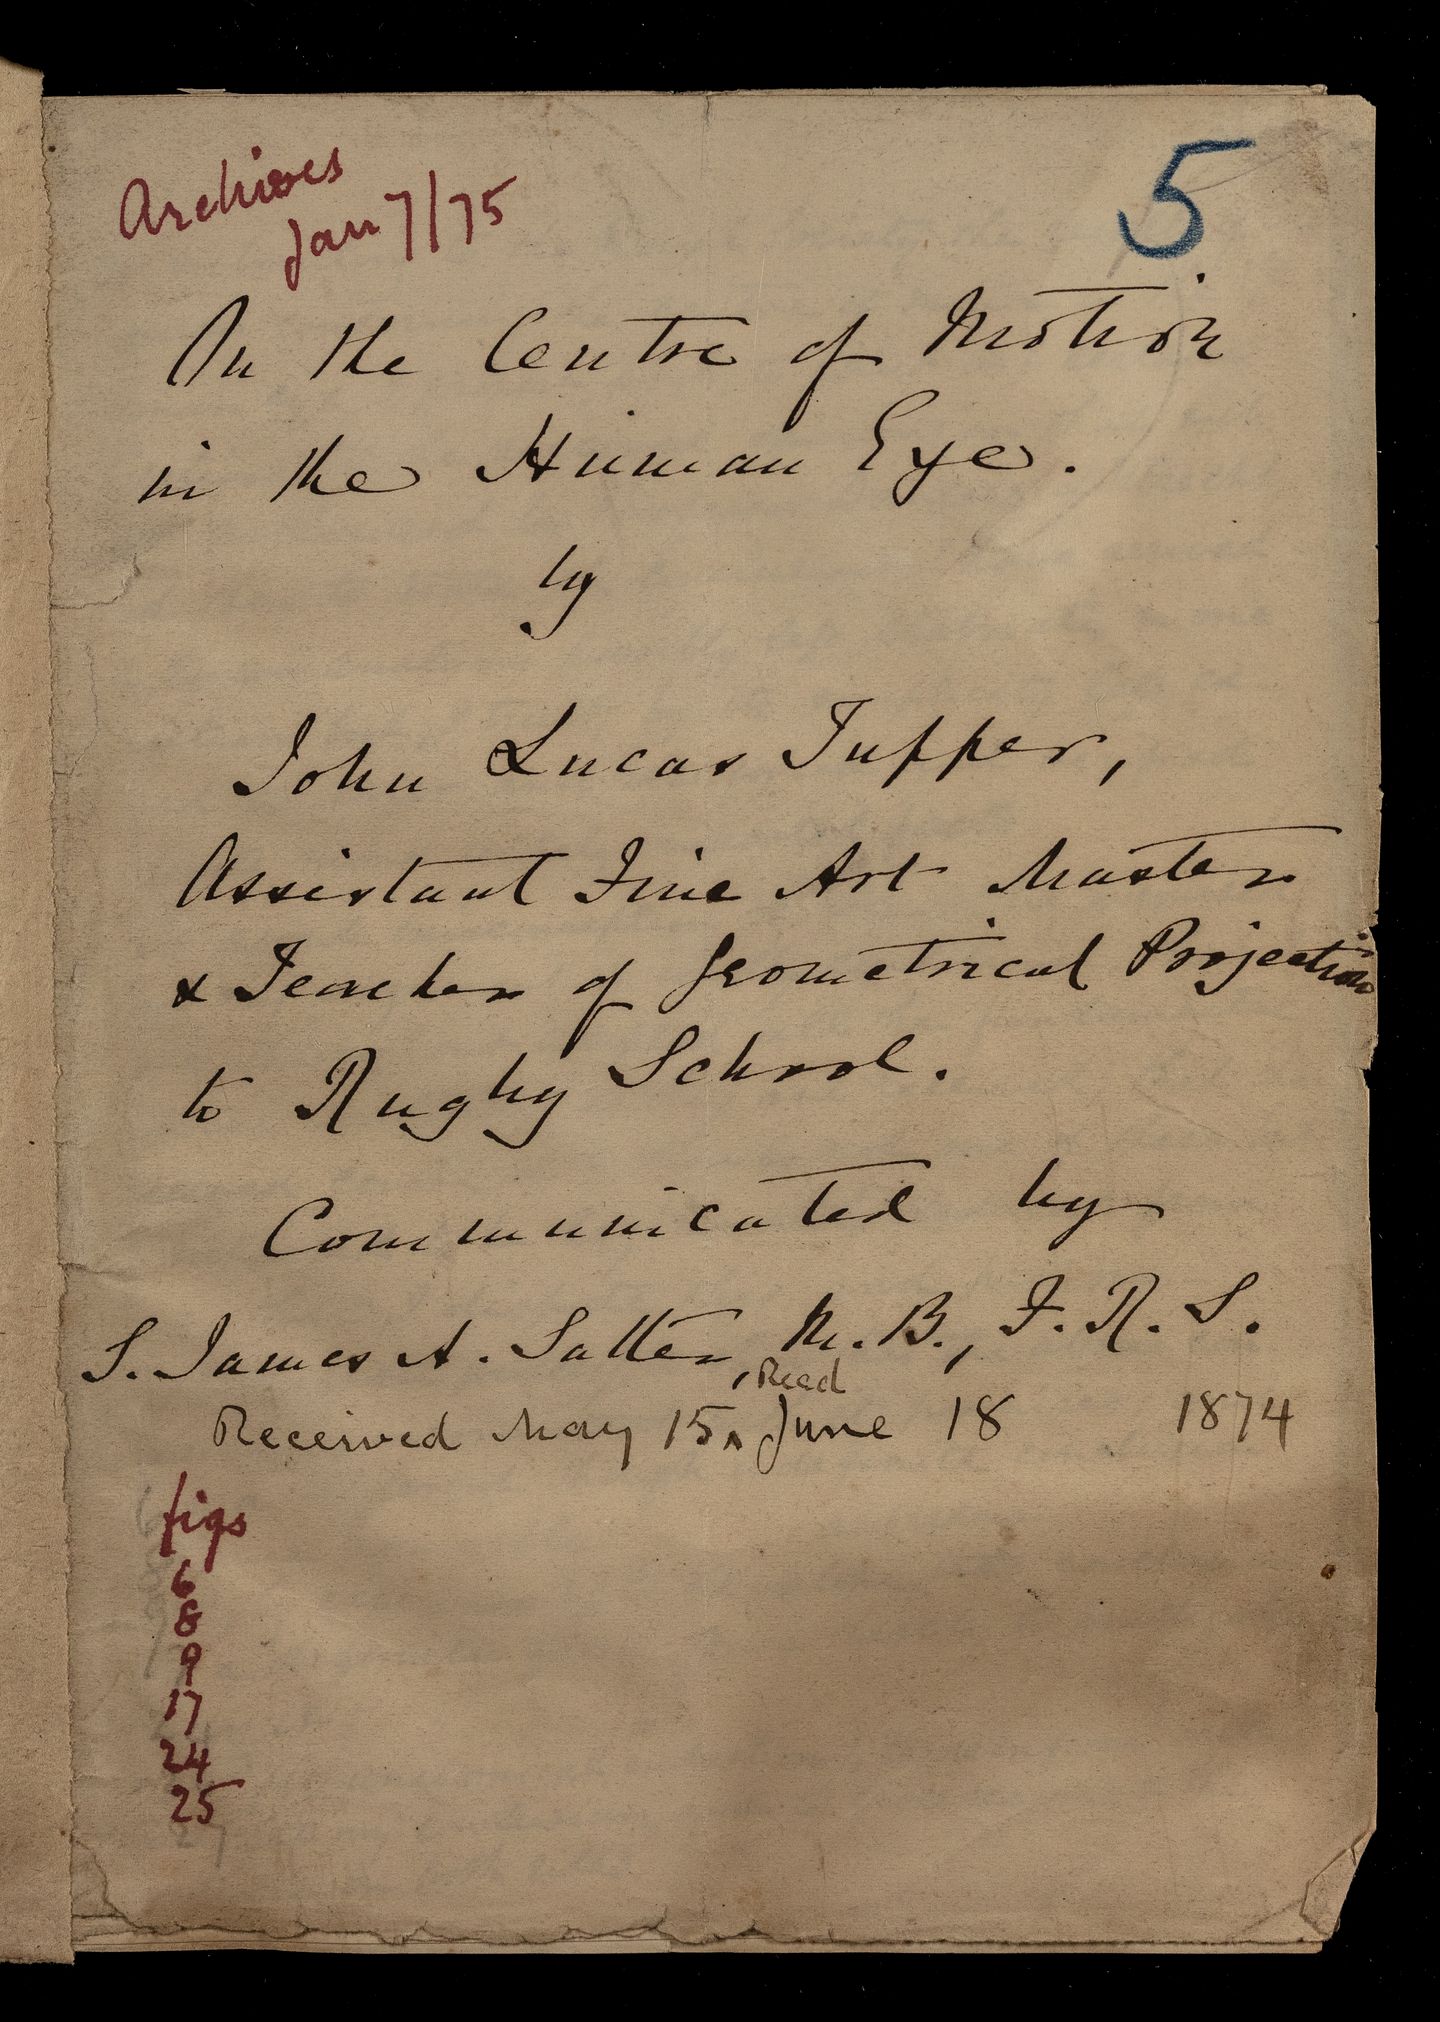 Archives
Jan 7/75
5
On the Centre of Motion
in the Human Eye.
by
John Lucas Tupper,
Assistant Fine Art Master
& Teacher of Geometrical Projection
to Rugby School.
Communicated by
S. James A. Salter, M.B., F.R.S.
Read
Received May 15, June 18 1874
figs
6
8
9
17
24
25